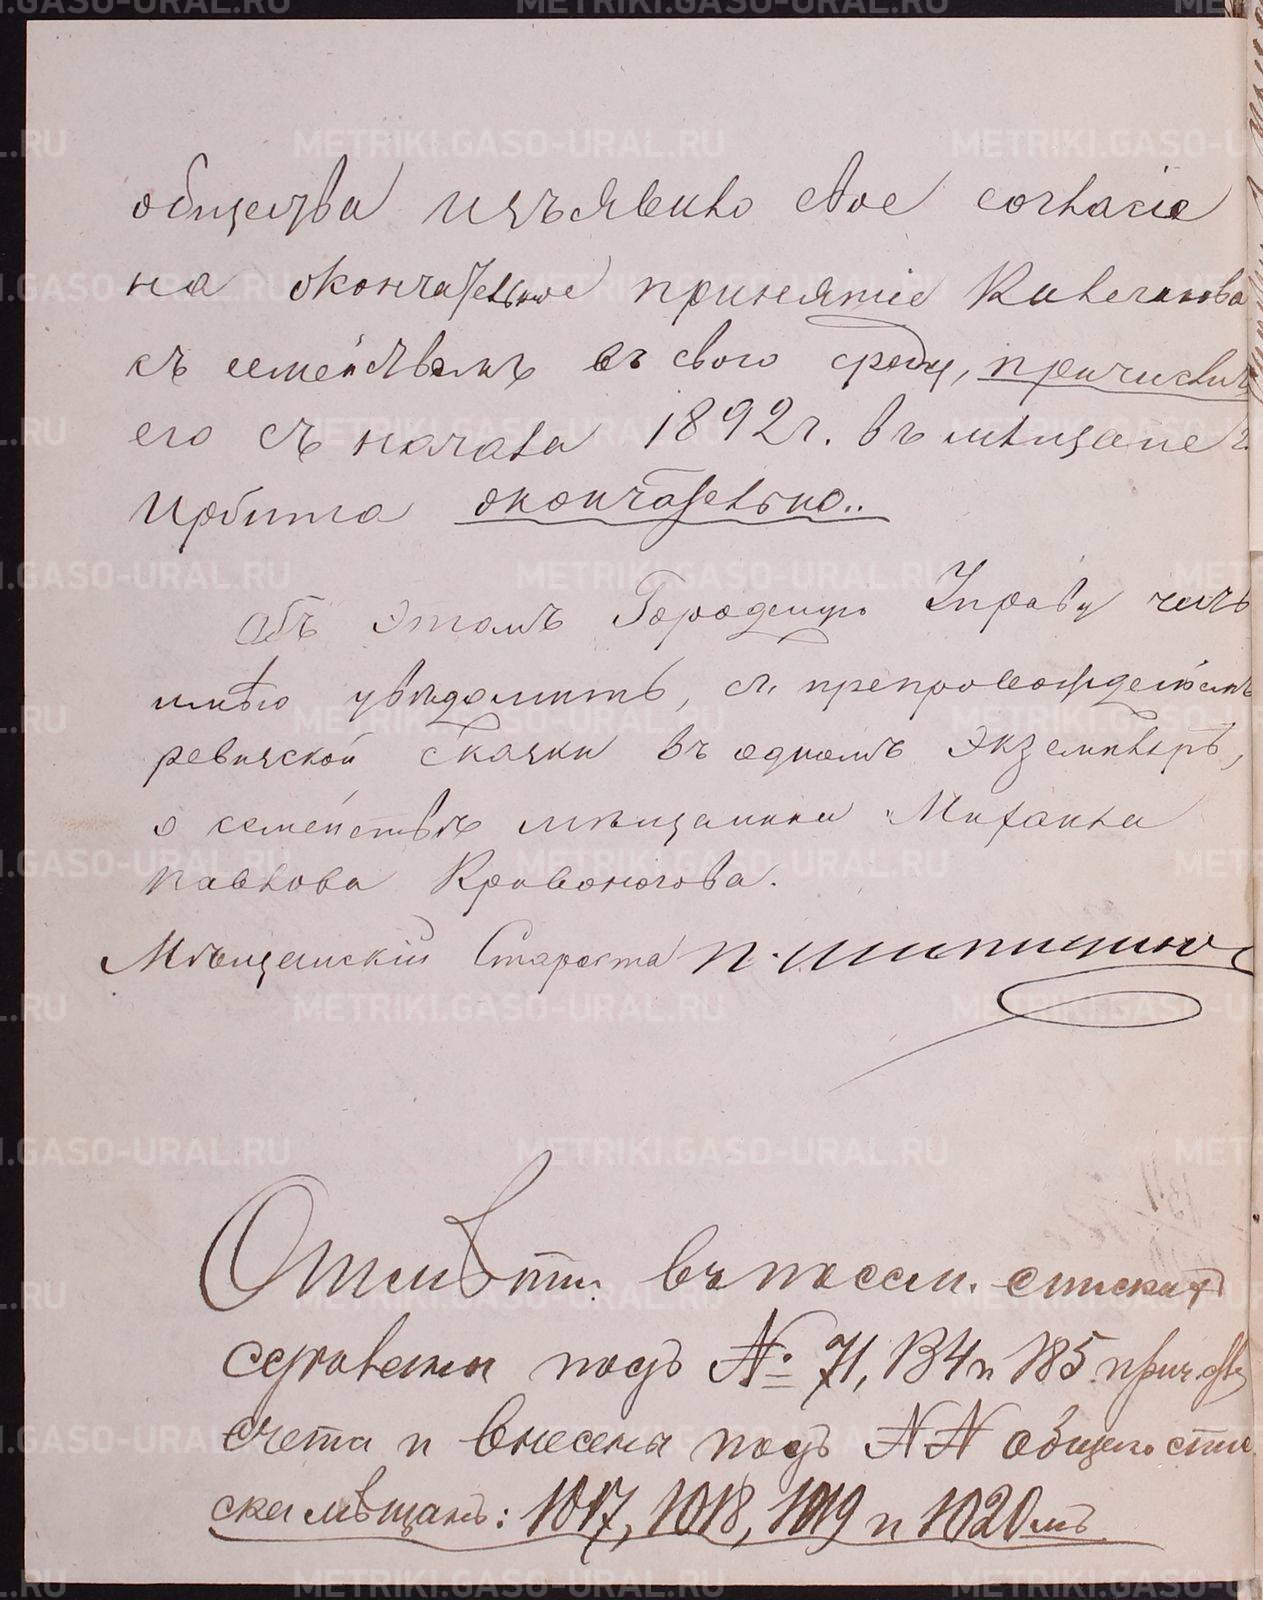 общества изъявило свое согласіе
на окончательное принятіе
съ семействомъ въ свою среду, причисливъ
его съ начала 1892 г. въ мѣщане г.
Ирбита окончательно..
Объ этомъ Городскую Управу честь
имѣю увѣдомить, съ препровожденіемъ
ревизской сказки въ одномъ экземплярѣ,
о семействѣ мѣщанина Михаила
Павлова Кривоногова.
Мѣщанскій Староста П. Шипицинъ
Отмѣтки въ посем. спискахъ
сдѣланы подъ № 71, 134 и 185
счета и внесены подъ NN общаго спи
ска мѣщанъ: 1017, 1018, 1019 и 1020 мъ
METRIKI.GASO-URAL.RU